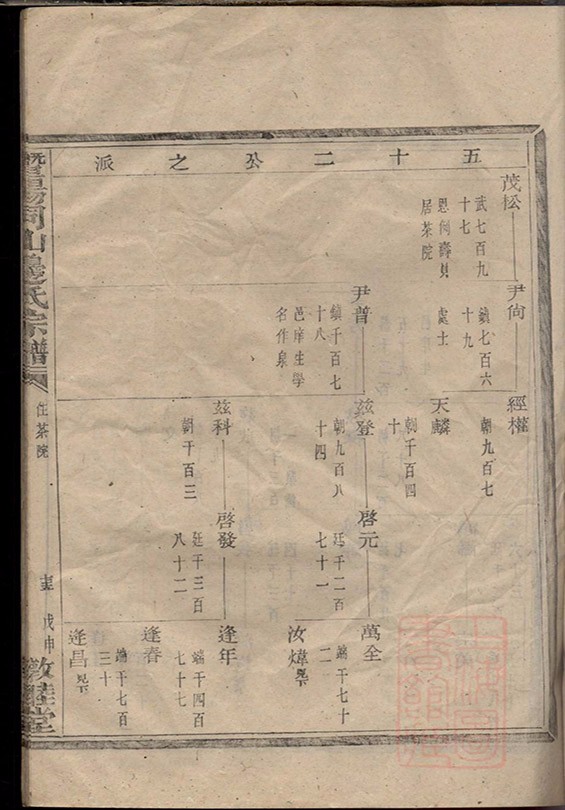 五十二公之派
茂松
武七百九
十七
恩例壽員
居茶院
尹尚
鎮七百六
十九
處士
尹普
鎮千百七
十八
邑庠生學
名作泉
經權
朝九百七
天麟
朝千百四
十
茲登
朝九百八
十四
茲科
朝千百三
啓元
廷千二百
七十一
啓發
廷千三百
八十二
萬全
端千七十
二
汝煒
逢年
端千四百
七十七
逢春
端千七百
三十
逢昌
同山邊氏宗譜
住茶院
戊申
敦睦堂